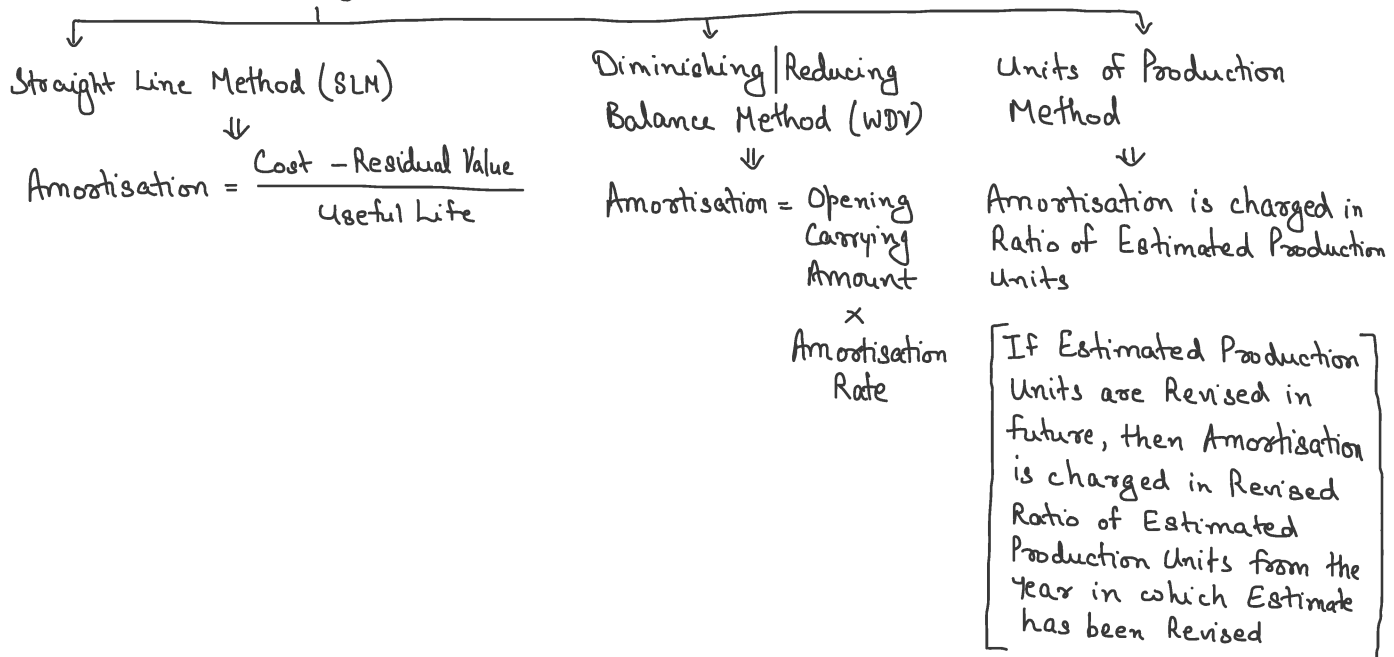 Straight Line Method (SLM)
⇓
Amortisation = Cost - Residual Value
Useful Life
Diminishing | Reducing
Balance Method (WDV)
⇓
Amortisation = Opening
Carrying
Amount
×
Amortisation
Rate
Units of Production
Method
⇓
Amortisation is charged in
Ratio of Estimated Production
Units
[If Estimated Production
Units are Revised in
future, then Amortisation
is charged in Revised
Ratio of Estimated
Production Units from the
Year in which Estimate
has been Revised]